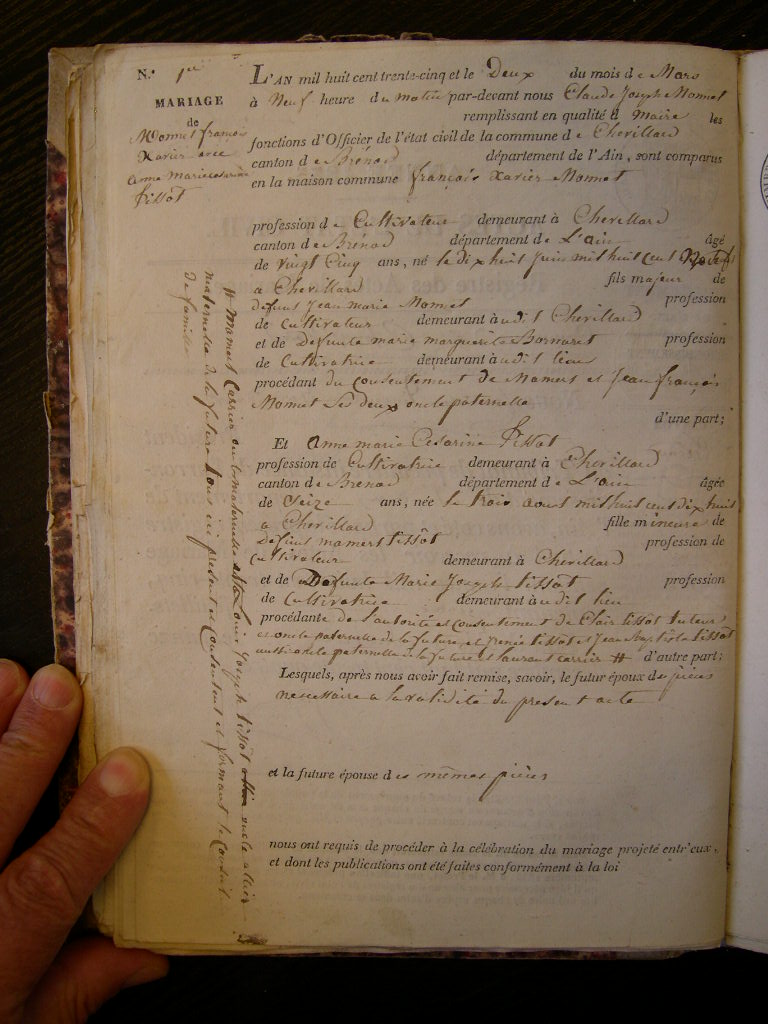 N.º 1er
MARIAGE
de
Monnet françois
Xavier avec
anne marie cesarine
tissot
L'AN mil huit cent trente-cinq et le Deux du mois de Mars
à Neuf heure du matin par-devant nous Claude Joseph Monnet
remplissant en qualité d maire les
fonctions d'Officier de l'état civil de la commune de Chevillard
canton de Brénod département de l'Ain, sont comparus
en la maison commune françois Xavier Monnet
profession de Cultivateur demeurant à Chevillard
canton de Brénod département de L'ain âgé
de vingt Cinq ans, né le dix huit juin mil huit cent Neuf
a Chevillard fils majeur de
defunt Jean marie Monnet profession
de Cultivateur demeurant audit Chevillard
et de Defunte marie marguerite Bornaret profession
de Cultivatrice demeurant audit lieu
procédant du consentement de Mamert et Jean françois
Monnet Ses deux oncle paternelle
d'une part;
Et Anne marie Cesarine Tissot
profession de Cultivatrice demeurant à Chevillard
canton de Brenod département de L'ain âgée
de Seize ans, née le trois aout mil huit cent dix huit
a Chevillard fille mineure de
Defunt mamert tissot profession de
Cultivateur demeurant à Chevillard
et de Defunte Marie Josephe tissot profession
de Cultivatrice demeurant audit lieu
procédante de l'autorité et consentement de Clair tissot tuteur
et oncle paternelle de la future, et tissot et Jean tissot
aussi oncle paternelle de la future et laurant Carrier # d'autre part;
Lesquels, après nous avoir fait remise, savoir, le futur époux des pièces
necessaire a la validité du present acte
et la future épouse des mêmes pièces
nous ont requis de procéder à la célébration du mariage projeté entr'eux,
et dont les publications ont été faites conformément à la loi
# Mamert Carrier oncle maternelle Joseph tissot oncle
maternelle de la future tous ici present et Consentant et formant le Conseil
de famille